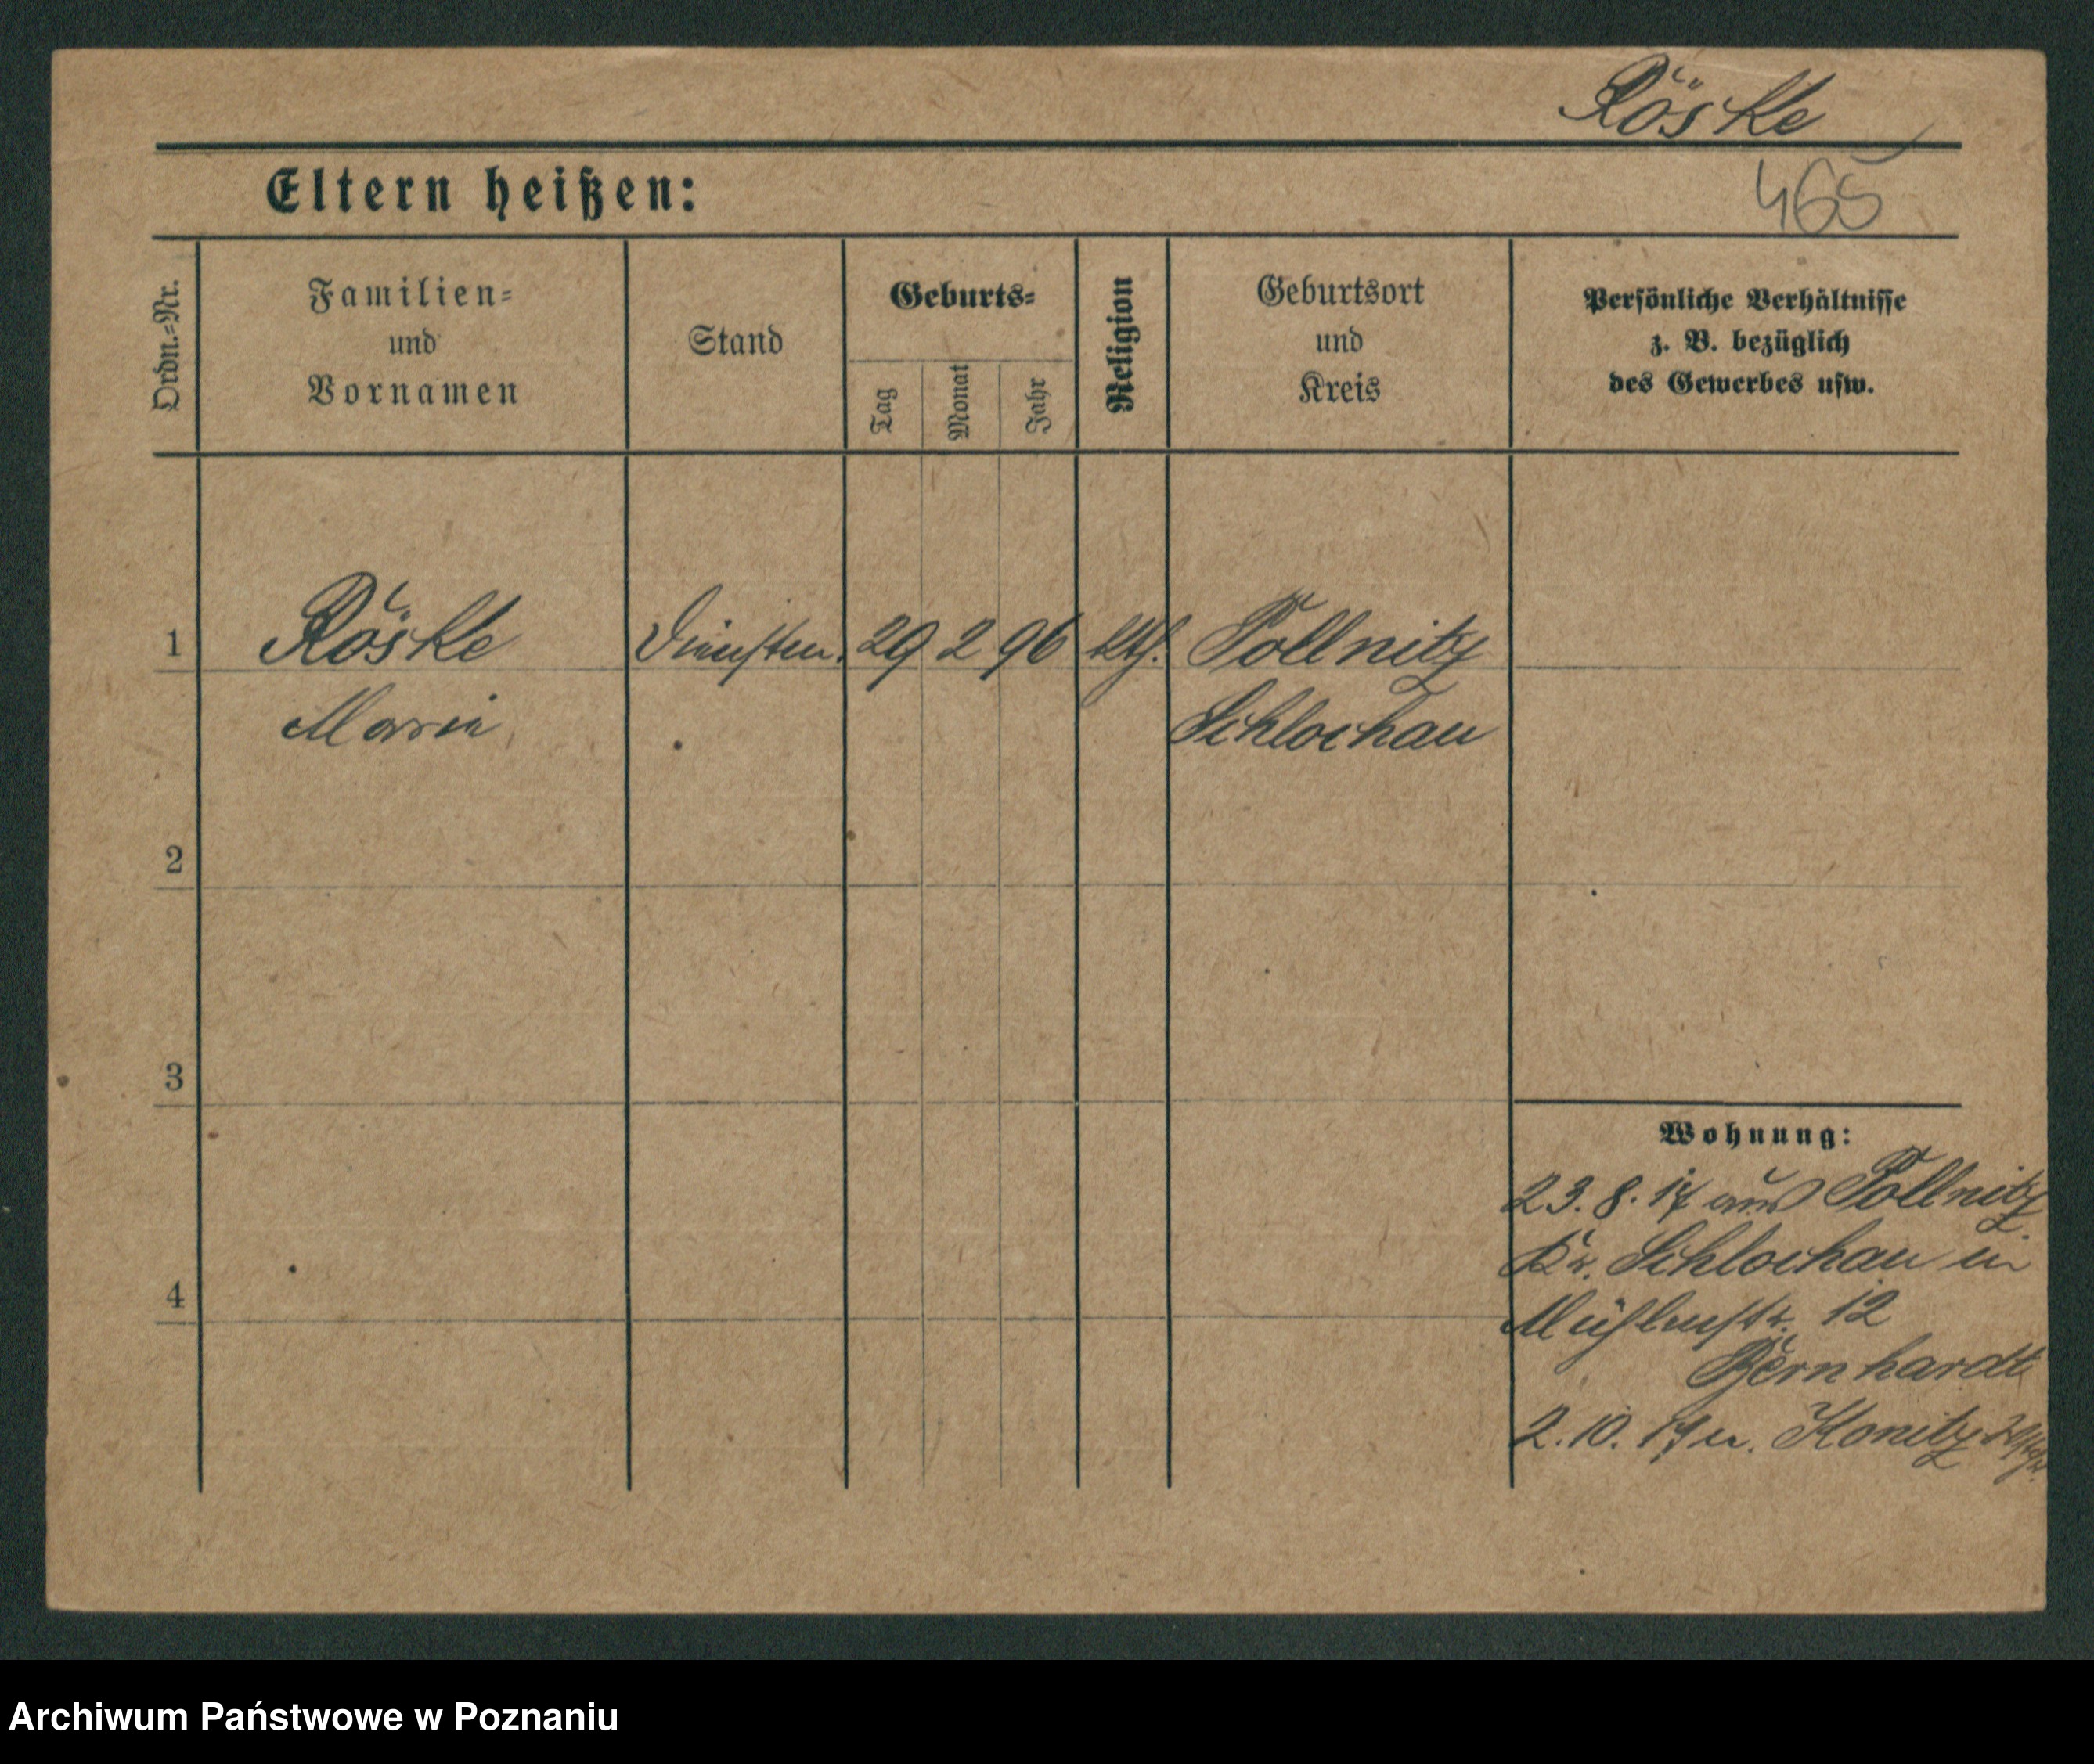 Röske
465
Eltern heißen:
Ordn.-Nr.
Familien-
und
Vornamen
Stand
Geburts-
Tag
Monat
Jahr
Religion
Geburtsort
und
Kreis
Persönliche Verhältnisse
z. B. bezüglich
des Gewerbes usw.
1
Röske
29 2 96 kth. Pollnitz
Marie
Schlochau
2
3
4
Wohnung:
23.8.17 aus Pollnitz
Kr. Schlochau in
Mühlenstr. 12
Bernhardt
2.10. 17 n. Konitz
Archiwum Państwowe w Poznaniu